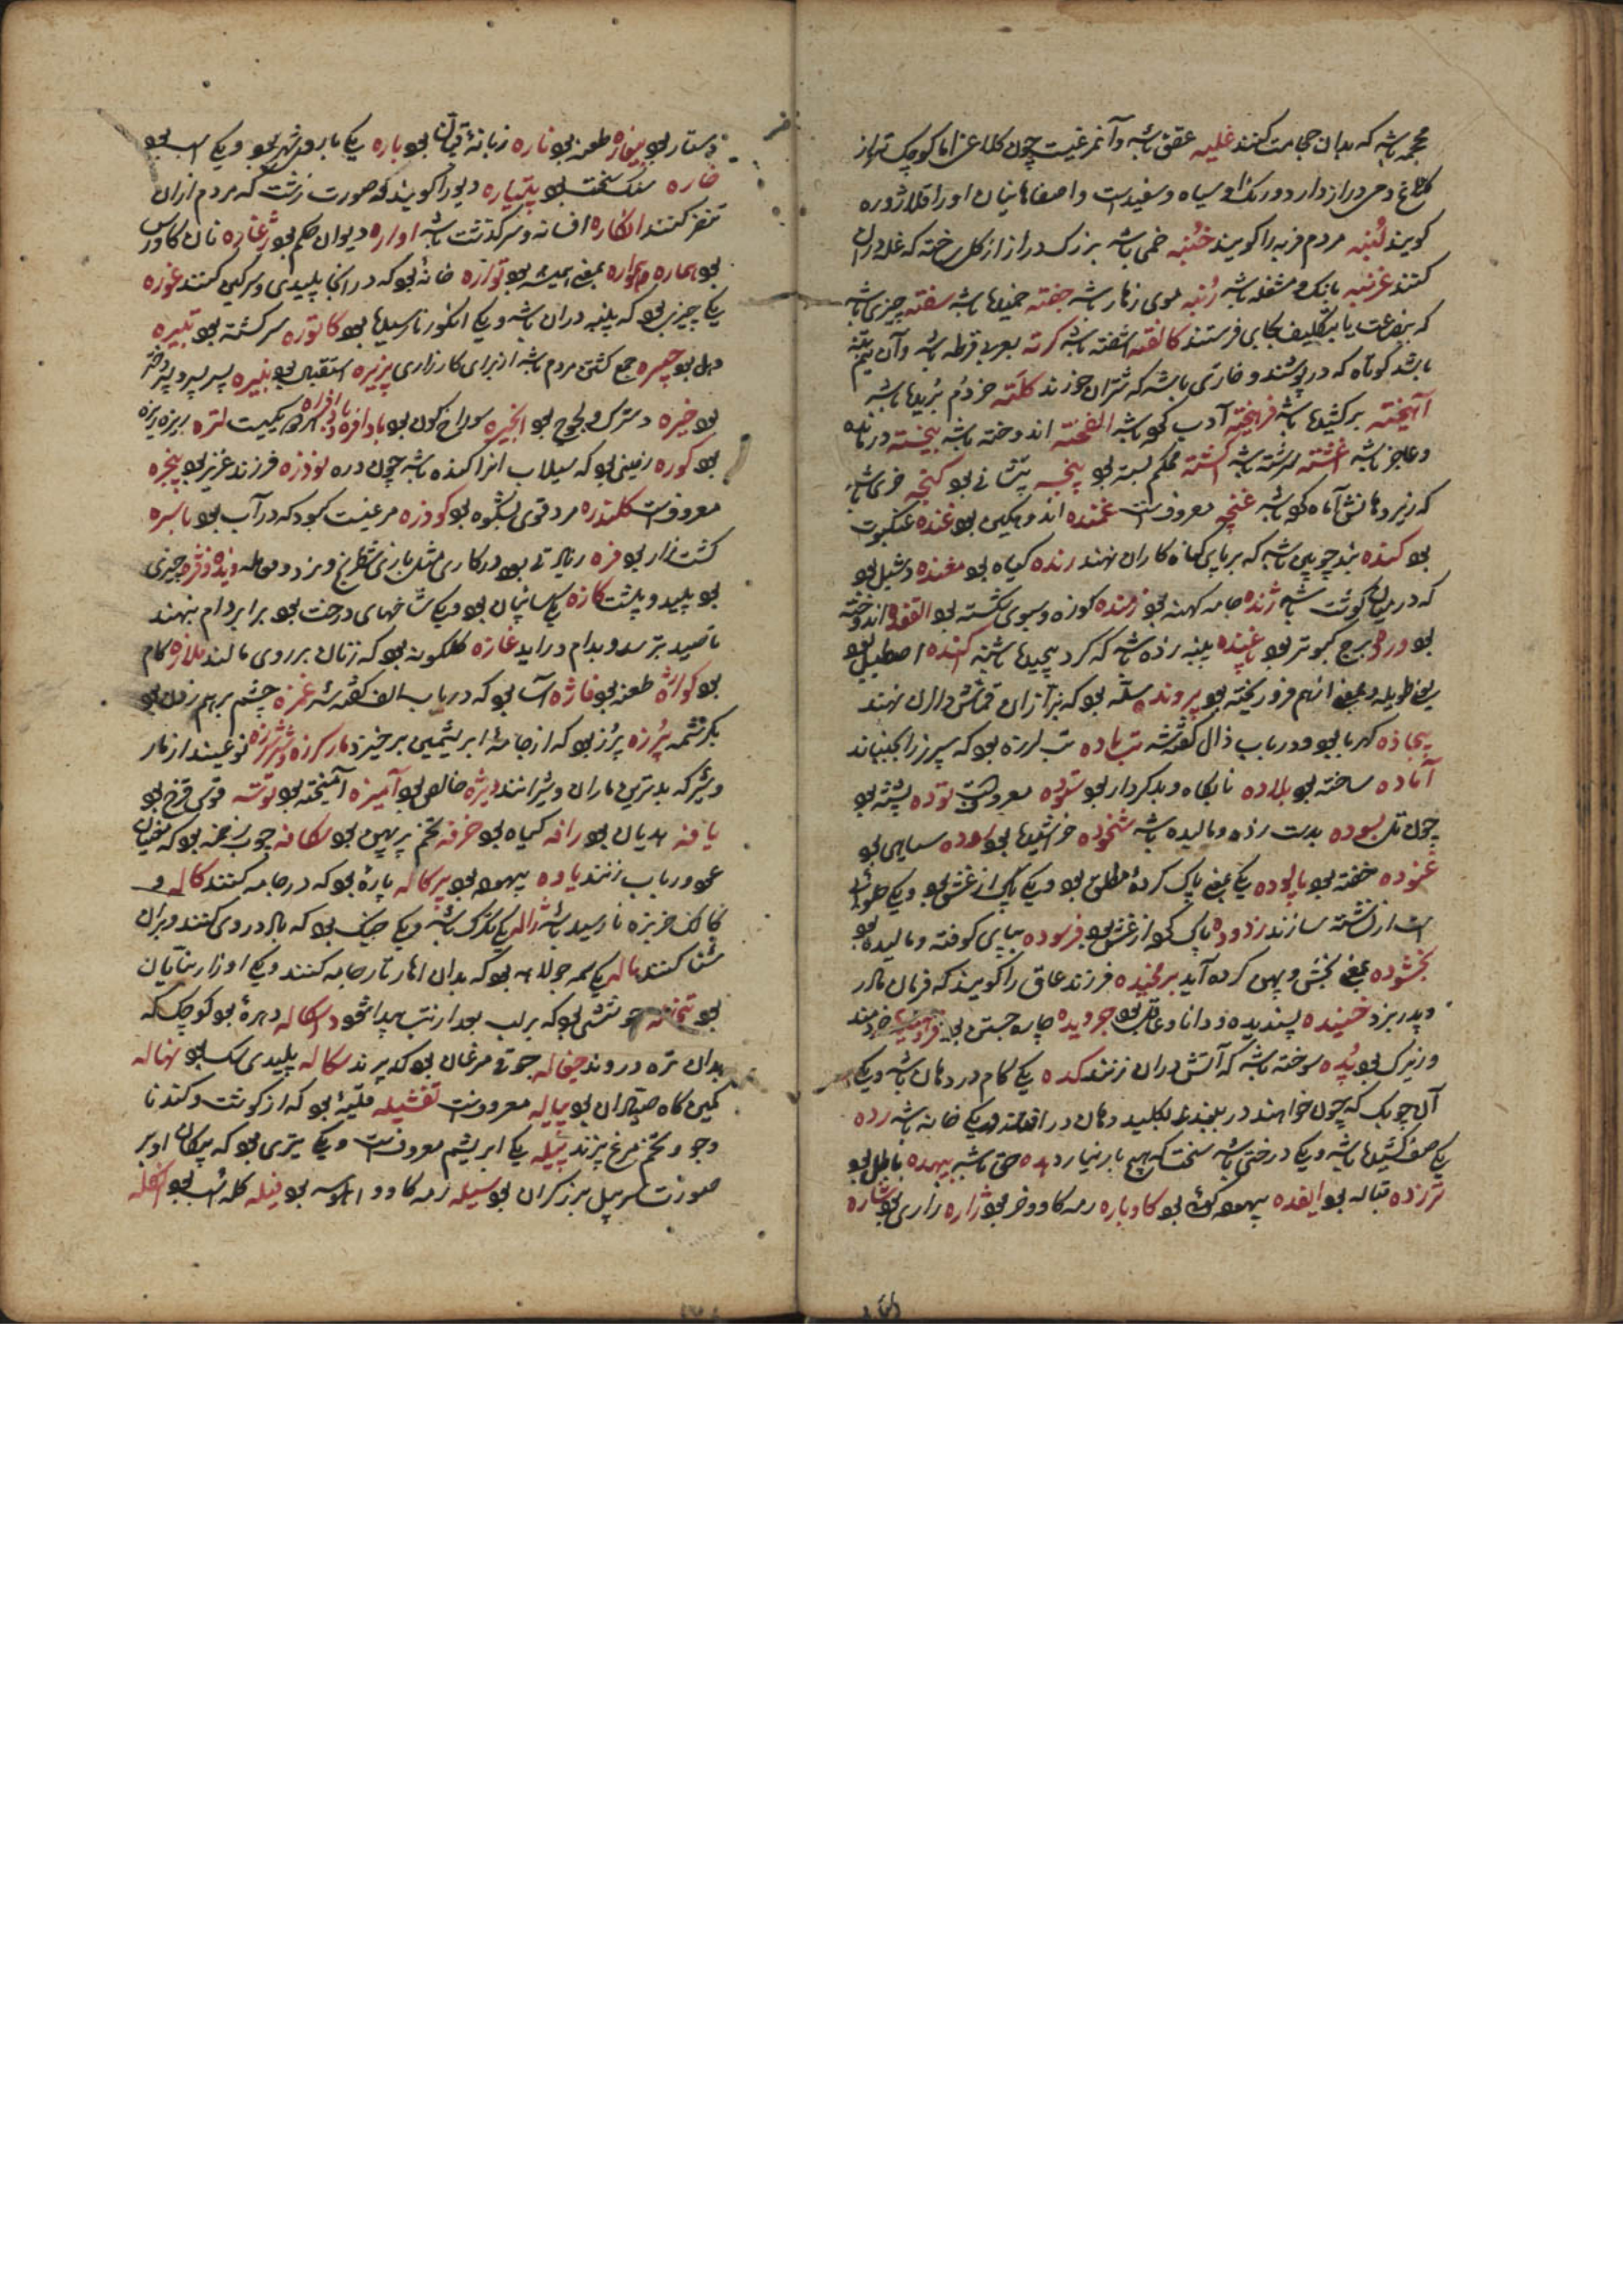 محجمه باشد که بدان حجامت کنند غلبه عقعق باشد وآن مرغیست چون کلاغ اما کوچک تر از
کلاغ دمی دراز دارد دو رنک سیاه وسفیدست واصفاهانیان او را قلاژوره
کویند لنبه مردم فربه را کویند خنبه خمی باشد بزرک دراز از کل ساخته که غله دران
کنند غرنبه بانک ومشغله باشد رنبه موی زهار باشد جفته خمیده باشد سفته چیزی باشد
که ببضاعت یا بتکلیف بجایی فرستند کالفته آشفته باشد کرته بعربی قرطه باشد وآن نیم تنه
باشد کوتاه که درپوشند وخاری باشد که شتران خورند کلته خر دم بریده باشد
آهیخته برکشیده باشد فرهیخته آدب کرده باشد الفخته اندوخته باشد بیخسته درمانده
وعاجز باشد اغشته سرشته باشد کشته محکم بسته بو پنجه پیشانی بو کنجه خری باشد
که زیر دهانش آماه کرده باشد غنچه معروفست غمنده اندوهکین بو غنده عنکبوت
بو کنده بند چوبین باشد که بر پای کناه کاران نهند رنده کیاه بو مغنده دشبل بو
که در میان کوشت باشد ژنده جامه کهنه بو زمنده کوزه وسبوی شکسته بو الفغده اندوخته
بو ورده برج کبوتر بو باغنده پنبه زده باشد که کرد پیچیده باشند کنده اصطبل بو
یعنی طویله وبمعنی از هم فرو ریخته بو پرونده سله بو که بزازان قماش دران نهند
بیجاده کهربا بو ودر باب ذال کفته شد تب باده تب لرزه بو که سپرز را بجنباند
آماده ساخته بو بلاده نابکاه وبدکردار بو ستوده معروفست توده پشته بو
چون تل بسوده بدست زده ومالیده باشد شخوده خراشیده بو سیاهی بو
غنوده خفته بو پالوده یکی بمعنی پاک کرده مطلق بو ویکی پاک از غش بو ویکی حلوائی
است از نشسته سازند زدوده پاک کرده از غش بو فرسوده بپای کوفته ومالیده بو
بخشوده بمعنی بخش وپهن کرده آید برمخیده فرزند عاق را کویند که فرمان مادر
وپدر نبرد خنیده پسندیده ودانا وعاقل بو جرویده چاره جستن بو خردمند
وزیرک بو پده سوخته باشد که آتش دران زنند کده یکی کام در دهان باشد ویکی
آن چوبک که چون خواهند در ببندند بکلید دهان در افتد ویکی خانه باشد رده
یکی صف کشیده باشد ویکی درختی باشد سخت که هیچ بار نیارد هده حق باشد بیهده باطل بو
ترزده قباله بو ایفده بیهوده کوئی بو کاوباره رمه کاو وخر بو زاره زاری بو شاره
دستار بو بیغاره طعنه بو ناره زبانهٔ قپان بو باره یکی باروی شهر بو ویکی اسب بو
خاره سنک سخت بو پتیاره دیو را کویند که صورت زشت که مردم ازان
تنفر کنند انکاره افسانه وسرکذشت باشد اواره دیوان حکم بو ژغاره نان کاورس
بو هماره وهمواره بمعنی همیشه بو تواره خانهٔ بو که در انجا پلیدی وسرکین کنند غوزه
یکی چیزی بو که پنبه دران باشد ویکی انکور نارسیده بو کاتوره سرکشته بو تبیره
دهل بو چیره جمع کشتن مردم باشد از برای کارزاری پذیره استقبال بو نبیره پسر پسر وپسر دختر
بو خیره دسترک ولجوج بو انجیره سوراخ کون بو بادافره وبادافراه هردو یکیست لتره ریزه ریزه
بو کوره زمینی بو که سیلاب انرا کنده باشد چون دره نوذره فرزند عزیز بو پنجره
معروفست کلندره مرد قوی بشکوه بو کودره مرغیست کبود که در آب بو باسره
کشت زار بو فره زیادتی بو در کاری مثل بازی شطرنج ونرد ومعامله وبده وفژه چیزی
بو پلید وپلشت کازه یکی سایبان بو ویکی شاخهای درخت بو برابر دام بنهند
تا صید بترسد وبدام دراید غازه کلکونه بو که زنان بر روی مالند ملازه کام
بو کوازه طعنه بو فاژه آسا بو که در باب الف کفته شد غمزه چشم بر هم زدن بو
بکرشمه پرزه پرز بو که از جامهٔ ابریشمین برخیزد مار کرزه وشرزه نوعیند از مار
وشیر که بدترین ماران وشیرانند ویژه خالص بو آمیزه آمیخته بو نوشه قوس قزح بو
یافه هدیان بو رافه کیاه بو خرفه تخم پرپهن بو سکافه چوب زخمه بو که مغنیان
عود ورباب زنند یاوه بیهوده بو پرکاله پارهٔ بو که در جامه کنند کاله و
کالک خربزه نارسیده باشد ژاله یکی تکرک باشد ویکی خیک بو که باد در وی کنند وبران
شنا کنند ماله یکی سمه جولاهه بو که بدان اهار تار جامه کنند ویکی اوزار بنایان
بو تبخاله جوششی بو که بر لب بعد از تب پیدا شود داسکاله دهرهٔ بو کوچک که
بدان تره دروند جغاله جوقی مرغان بو که پرند سکاله پلیدی سک بو نهاله
کمین کاه صیادان بو پیاله معروفست تفشیله قلیهٔ بو که از کوشت وکندنا
وجو وتخم مرغ پزند پیله یکی ابریشم معروفست ویکی تیری بو که پیکان او بر
صورت سر بیل برزکران بو سیله رمه کاو واهو بو فیله کله اسب بو